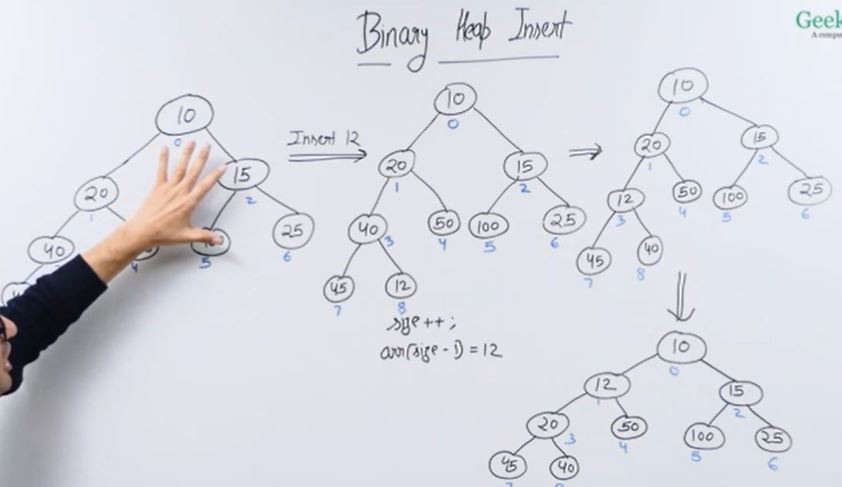 Binary Heap Insert
Geek
A compu
10
0
20
1
15
2
40
4
5
25
6
Insert 12
10
0
20
1
15
2
40
3
50
4
100
5
25
6
45
7
12
8
size++;
arr(size-1) = 12
10
0
20
1
15
2
12
3
50
4
100
5
25
6
45
7
40
8
10
0
12
1
15
2
20
3
50
4
100
5
25
6
45
40